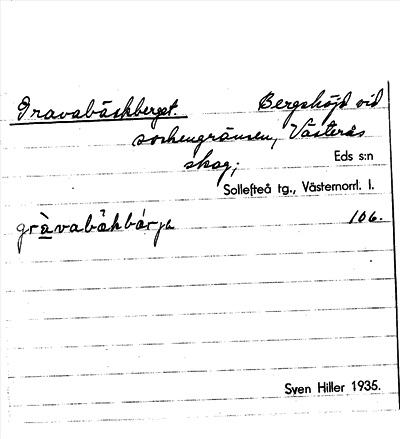 Gravabäckberget. Bergshöjd vid
sockengränsen, Västerås
skog; Eds s:n
Sollefteå tg., Västernorrl. l.
gràvabäkbárje 106.
Sven Hiller 1935.